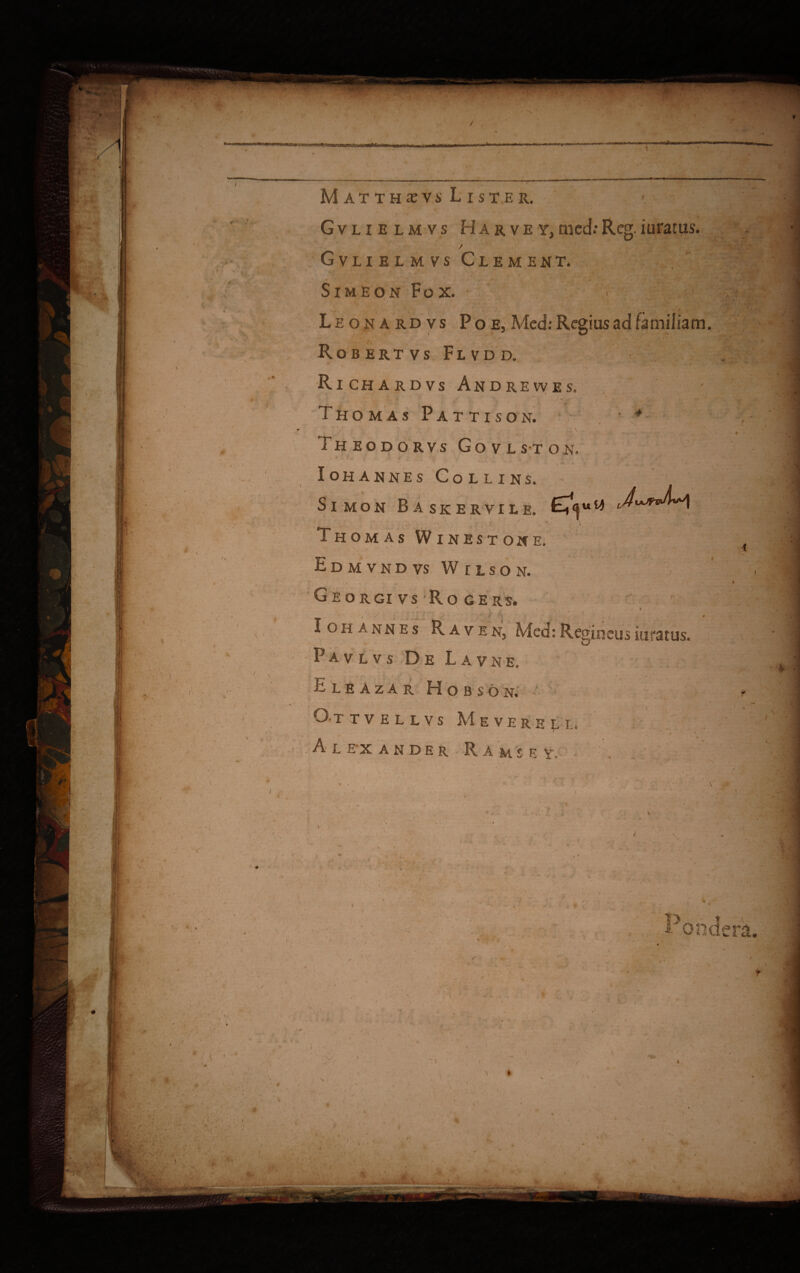 MATTHÆVS LISTER.
GVLIELMVS HARVEY, med: Reg. iuratus.
GVLIELMVS CLEMENT.
SIMEON FOX.
LEONARDVS POE, Med: Regius ad familiam.
ROBERTVS FLVDD.
RICHARDVS ANDREWES.
THOMAS PATTISON.
THEODORVS GOVLSTON.
IOHANNES COLLINS.
SIMON BASKERVILE. Equus Auratus
THOMAS WINESTONE.
EDMVNDVS WILSON.
GEORGIVS ROGERS.
IOHANNES RAVEN, Med: Regineus iuratus.
PAVLVS DE LAVNE.
ELEAZAR HOBSON.
OTTVELLVS MEVERELL.
ALEXANDER RAMSEY.
Pondera.